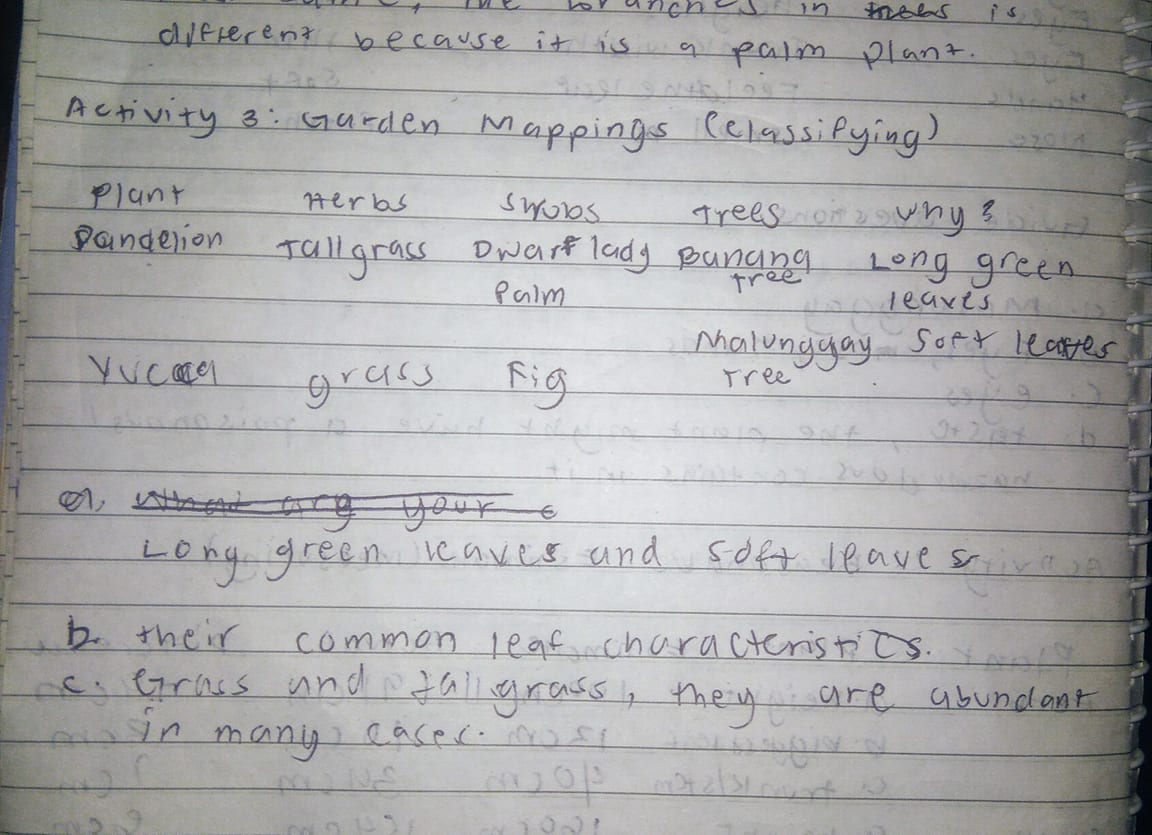 the branches in trees is
different because it is a palm plant.
Activity 3: Garden Mappings (classifying)
Plant Herbs Shrubs Trees why?
Dandelion Tall grass Dwarf lady Banana Long green
Palm Tree leaves
Malunggay Soft leaves
Yucca grass Fig Tree
a. What are your c
Long green leaves and soft leaves
b. their common leaf characteristics.
c. Grass and tall grass, they are abundant
in many cases.